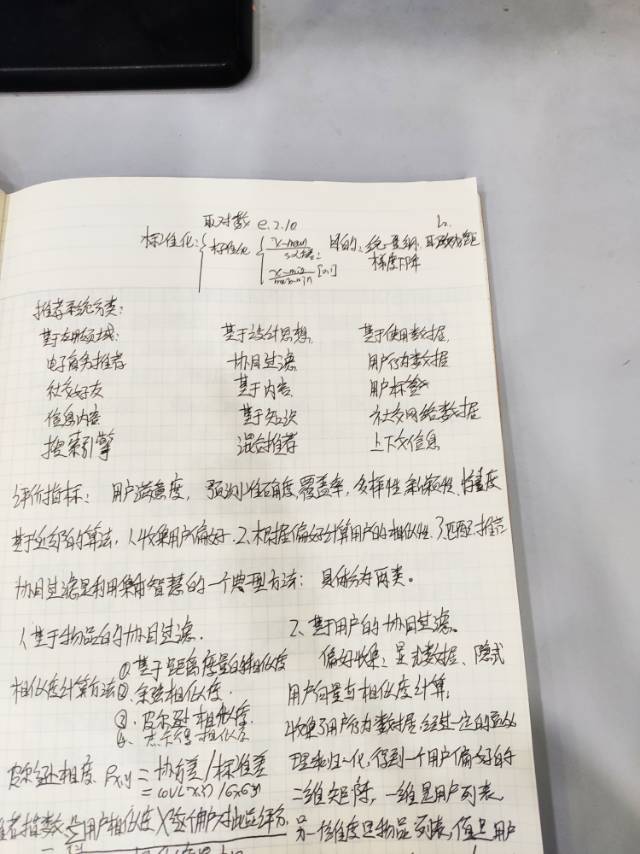 取对数 e.2.10
标准化: 标准化 x-mean 目的: 统一量纲,
x-min [0,1] 梯度下降
推荐系统分类:
基于应用领域: 基于设计思想 基于使用数据
电子商务推荐 协同过滤 用户行为数据
社交好友 基于内容 用户标签
信息内容 基于知识 社交网络数据
搜索引擎 混合推荐 上下文信息
评价指标: 用户满意度, 预测准确度, 覆盖率, 多样性
算法, 1.收集用户偏好. 2.根据偏好计算用户的相似性. 3.匹配推荐
协同过滤是利用集体智慧的一个典型方法: 具体分为两类。
1.基于物品的协同过滤. 2.基于用户的协同过滤.
①基于距离度量的相似度 偏好收集: 显式数据、隐式
相似度计算方法②余弦相似度. 用户向量与相似度计算:
③.皮尔逊相似度. 收集了用户行为数据经过一定的
4.杰卡德相似度 理和归一化,得到一个用户偏好的
皮尔逊相似度 ρx,y = 协方差/标准差 二维矩阵, 一维是用户列表
= 用户相似度 X 用户对此 评分 另一维度是物品列表,值是用户